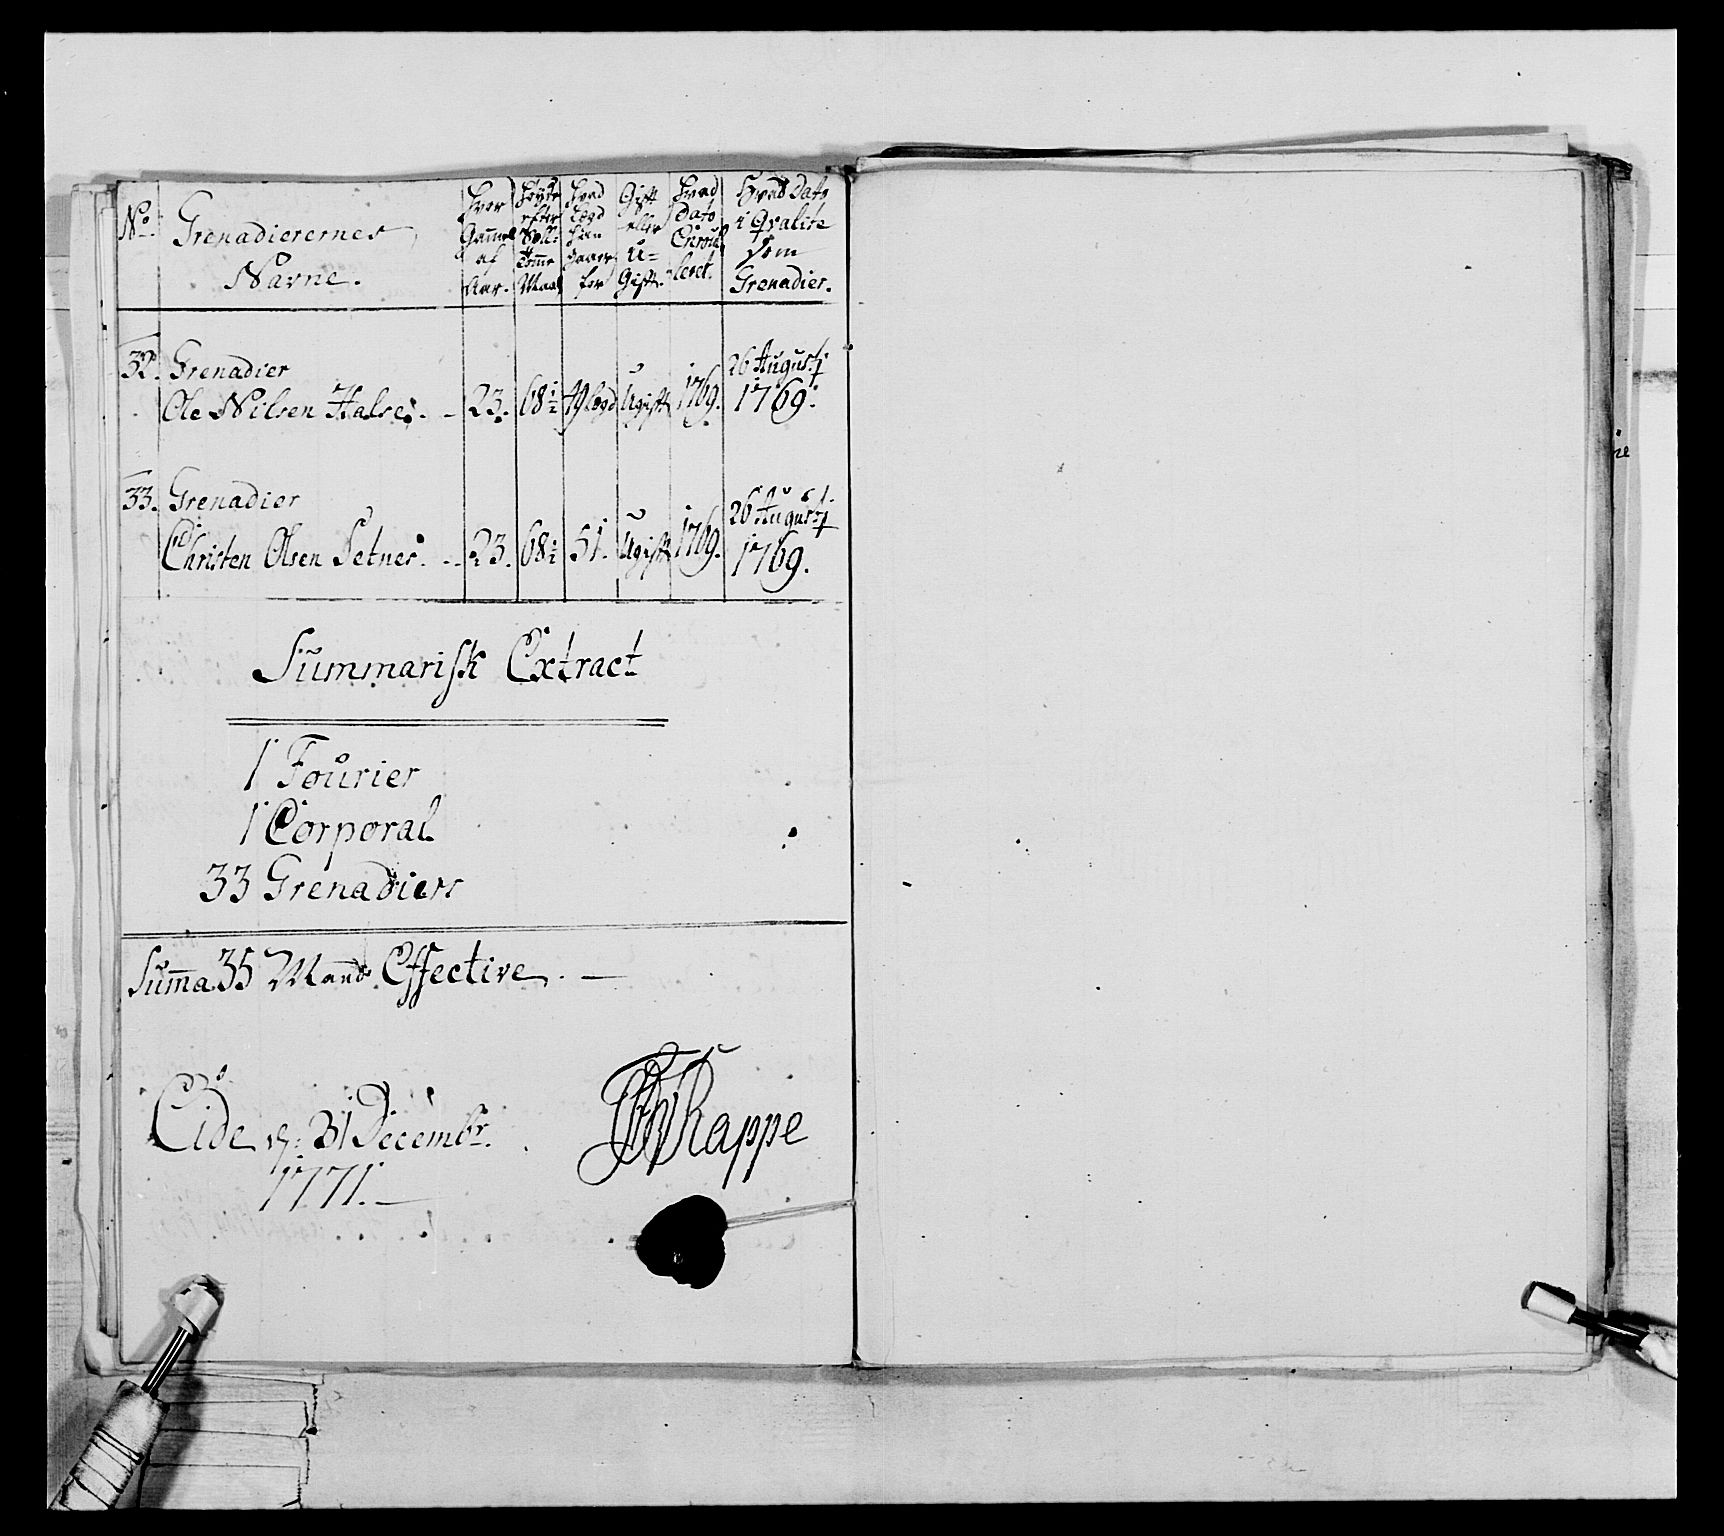 No. Grenadierernes Navne. Hvor Gammel af Aar. Høyde efter Soll: Tomme Maal Hvad Lægd han staaer for Gift eller U= Gift. Hvad Dato Enroulleret. Hvad Dato i Qvalite som Grenadier.
32. Grenadier 26 Augustj
Ole Nilsen Halse. - 23. 68½ 49 Lægd Ugift 1769. 1769.
33. Grenadier 26 Augustj
Christen Olsen Setnes. - - 23. 68½ 51. Ugift 1769. 1769.
Summarisk Extract
1 Fourier
1 Corporal
33 Grenadiers
Suma 35 Mands Effective. —
Eide d: 31 Decembr.
1771. —
Rappe